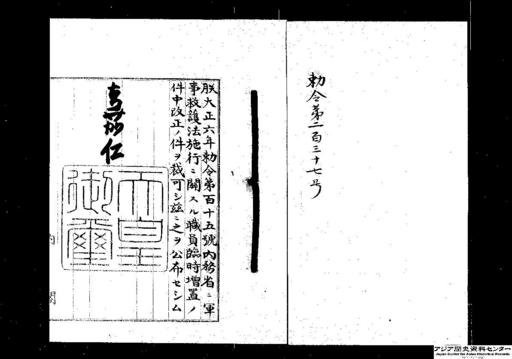 勅令第二百三十七号
朕大正六年勅令第百十五號内務省ニ軍
事救護法施行ニ關スル職員臨時増置ノ
件中改正ノ件ヲ裁可シ茲ニ之ヲ公布セシム
嘉仁
天皇
御璽
内
閣
アジア歴史資料センター
Japan Center for Asian Historical Records